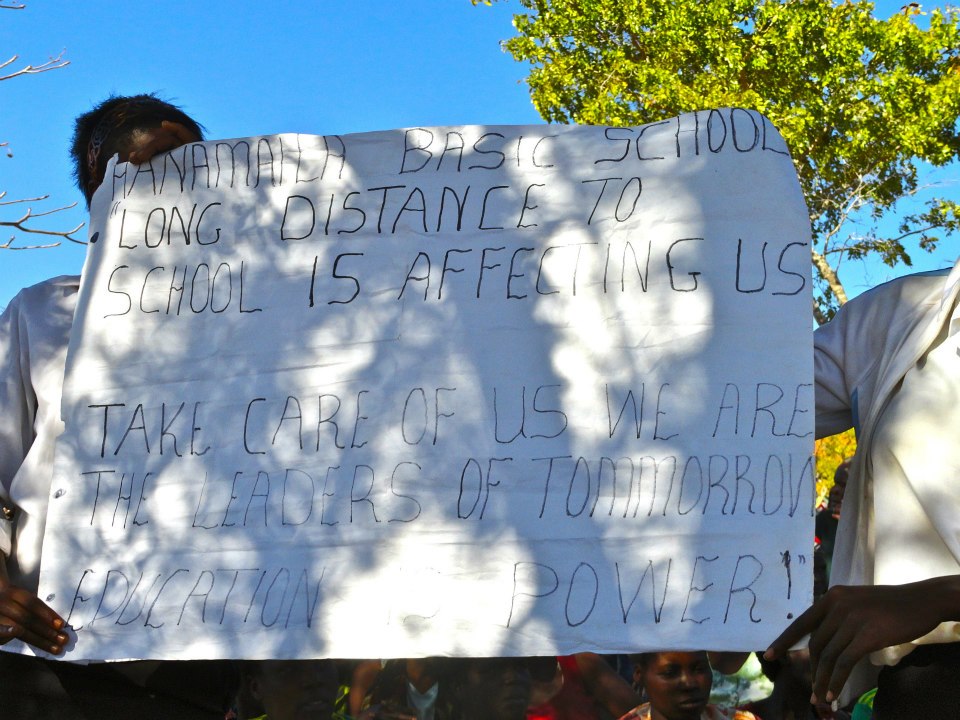 HANAMAILA BASIC SCHOOL
"LONG DISTANCE TO
SCHOOL IS AFFECTING US
TAKE CARE OF US WE ARE
THE LEADERS OF TOMMORROW
EDUCATION IS POWER!"